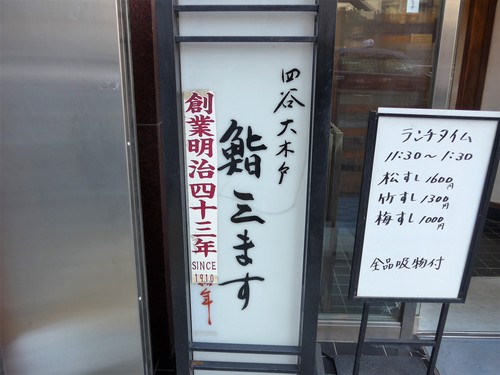 四谷大木戸
鮨 三ます
創業明治四十三年
SINCE
1910
年
ランチタイム
11:30〜1:30
松すし 1600円
竹すし 1300円
梅すし 1000円
全品吸物付